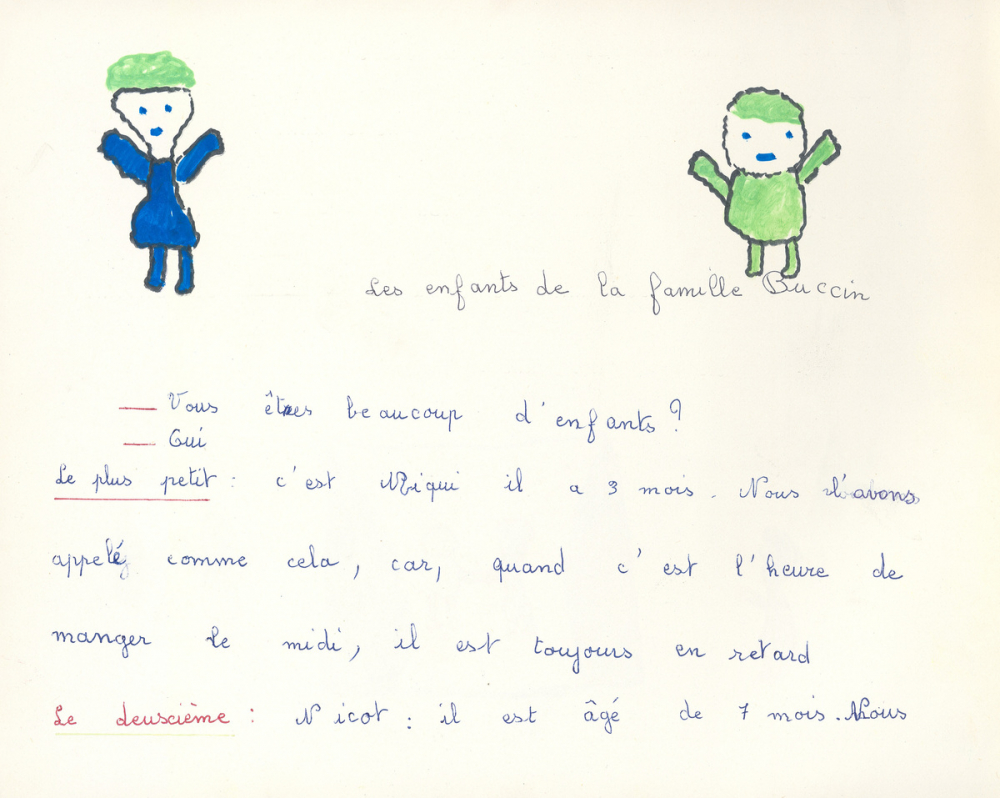 Les enfants de la famille Buccin
— Vous êtes beaucoup d'enfants ?
— Oui
Le plus petit : c'est Miqui il a 3 mois. Nous l'avons
appelé comme cela, car, quand c'est l'heure de
manger le midi, il est toujours en retard
Le deuxième : Nicot : il est âgé de 7 mois. Nous